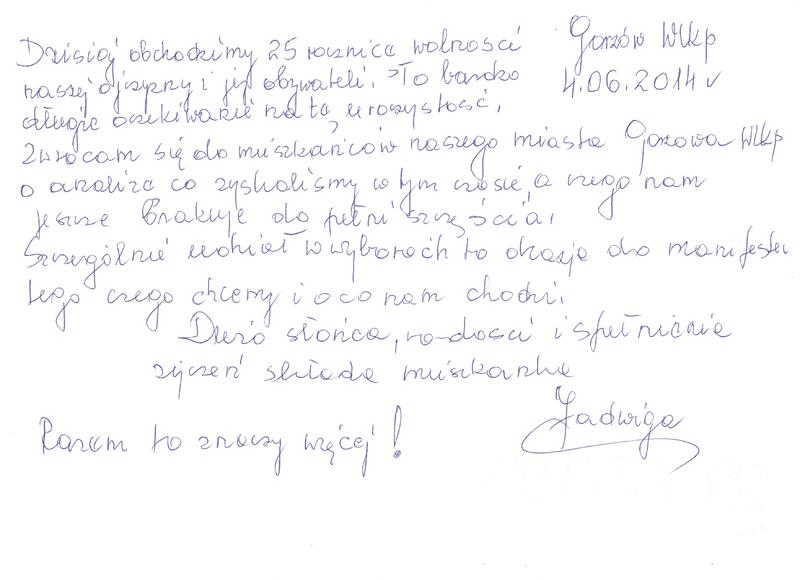 Gorzów Wlkp
4.06.2014 r
Dzisiaj obchodzimy 25 rocznicę wolności
naszej ojczyzny i jej obywateli. To bardzo
długie oczekiwanie na tą uroczystość.
Zwracam się do mieszkańców naszego miasta Gorzowa Wlkp
o analizę co zyskaliśmy w tym czasie, a czego nam
jeszcze brakuje do pełni szczęścia.
Szczególnie udział w wyborach to okazja do manifestu
tego czego chcemy i o co nam chodzi.
Dużo słońca, radości i spełnienie
życzeń składa mieszkanka
Jadwiga
Razem to znaczy więcej!